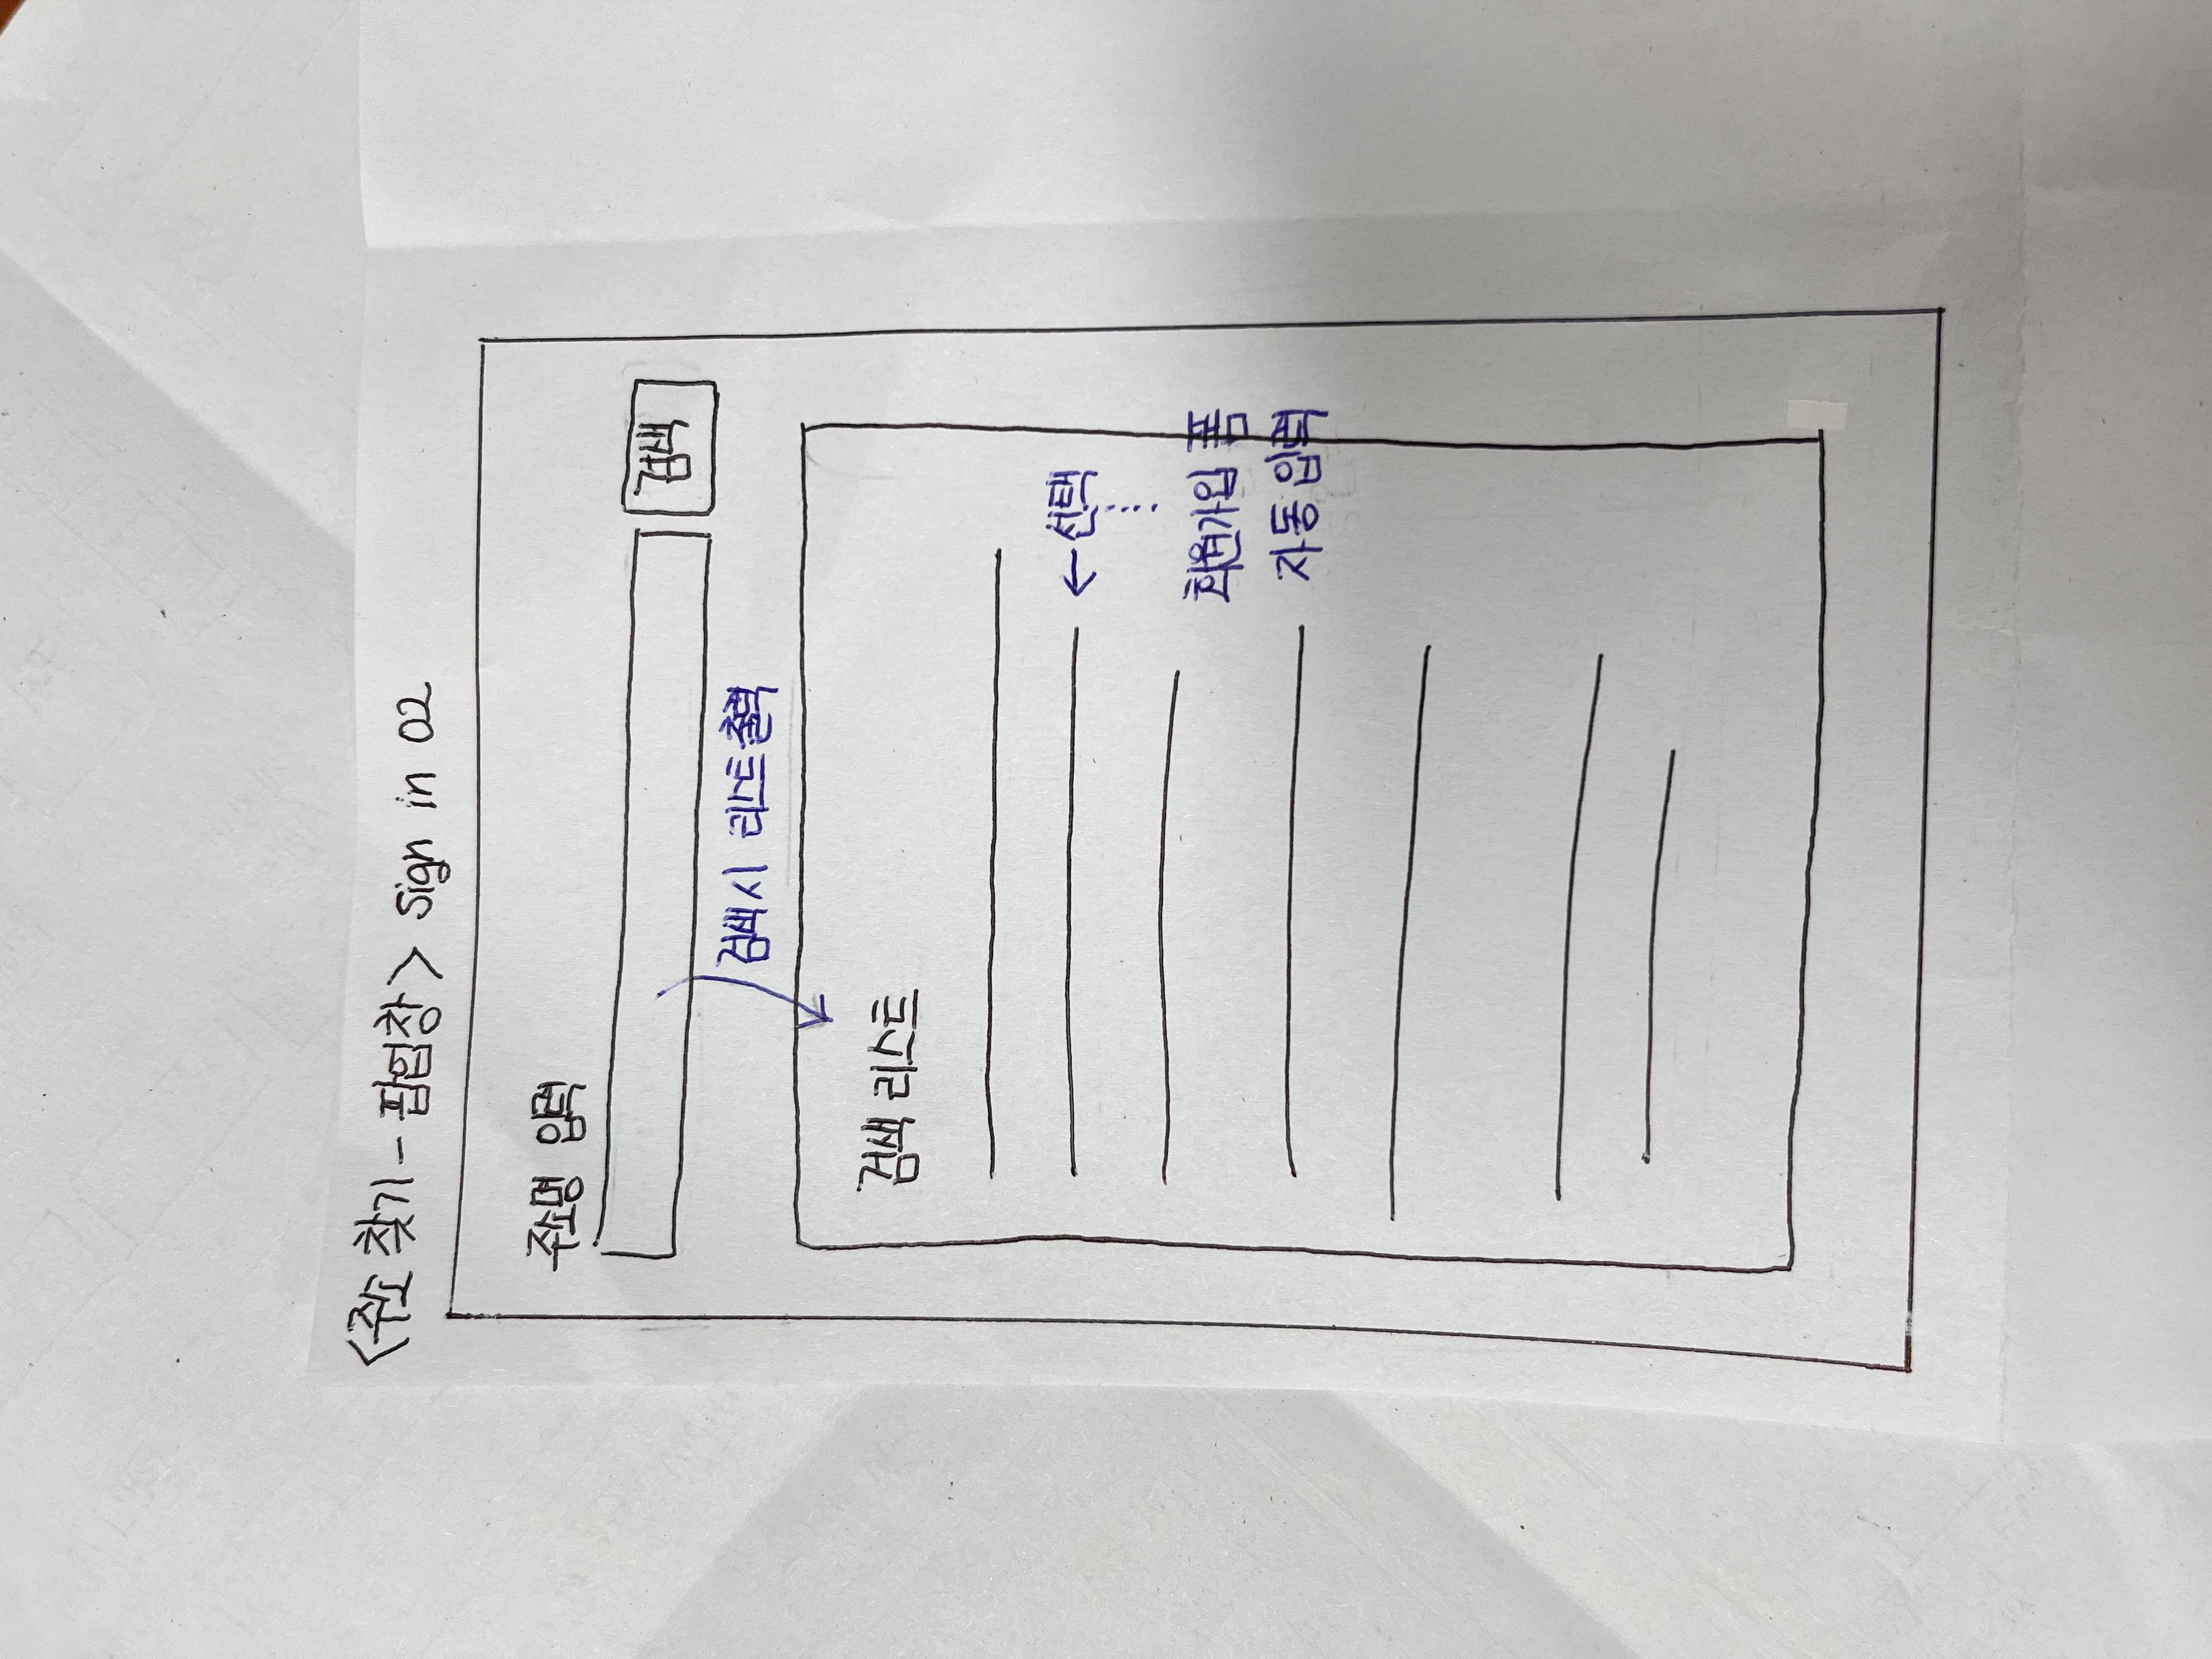 <주소 찾기 - 팝업창> Sign in 02
주소명 입력
검색
검색시 리스트 출력
검색 리스트
← 선택
회원가입 폼
자동 입력